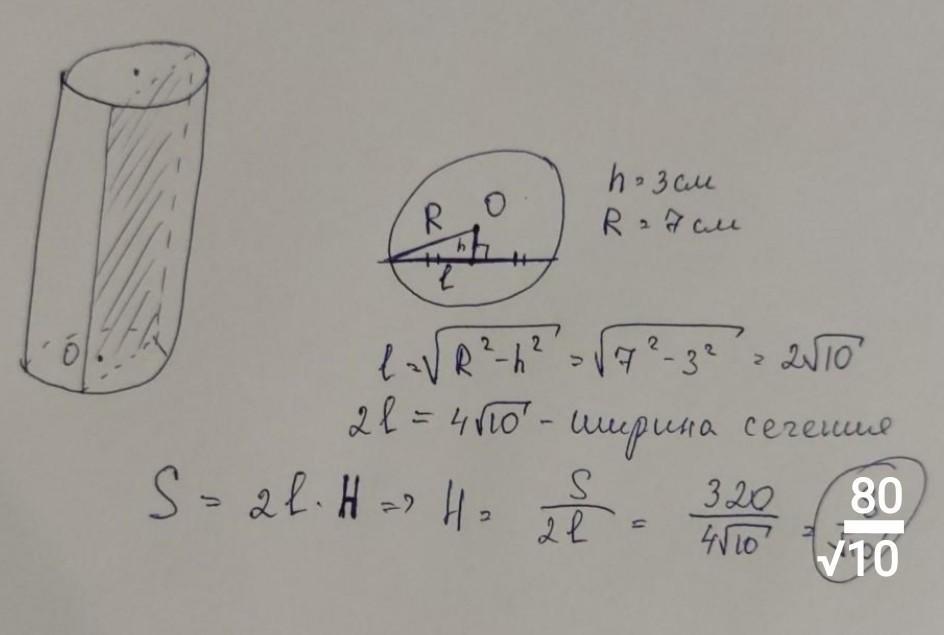 h = 3 см
R = 7 см
R O
h
l
O
l = √(R² - h²) = √(7² - 3²) = 2√10
2l = 4√10 - ширина сечения
S = 2l · H => H = S/2l = 320/4√10 = 80/√10